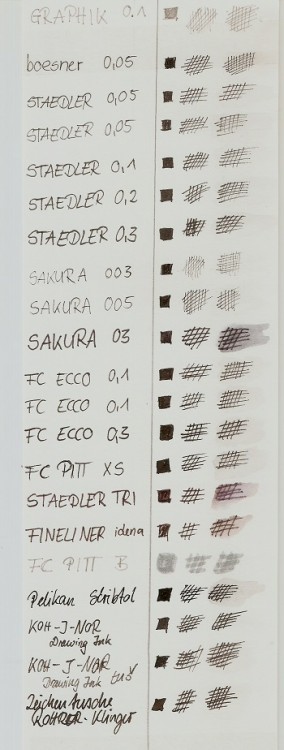 GRAPHIK 0.1
boesner 0,05
STAEDLER 0,05
STAEDLER 0,05
STAEDLER 0,1
STAEDLER 0,2
STAEDLER 0,3
SAKURA 003
SAKURA 005
SAKURA 03
FC ECCO 0,1
FC ECCO 0,1
FC ECCO 0,3
FC PITT XS
STAEDLER TRI
FINELINER idena
FC PITT B
Pelikan Scribtol
KOH-I-NOR
Drawing Ink
KOH-I-NOR
Drawing Ink
Zeichentusche
ROHRER-Klinger